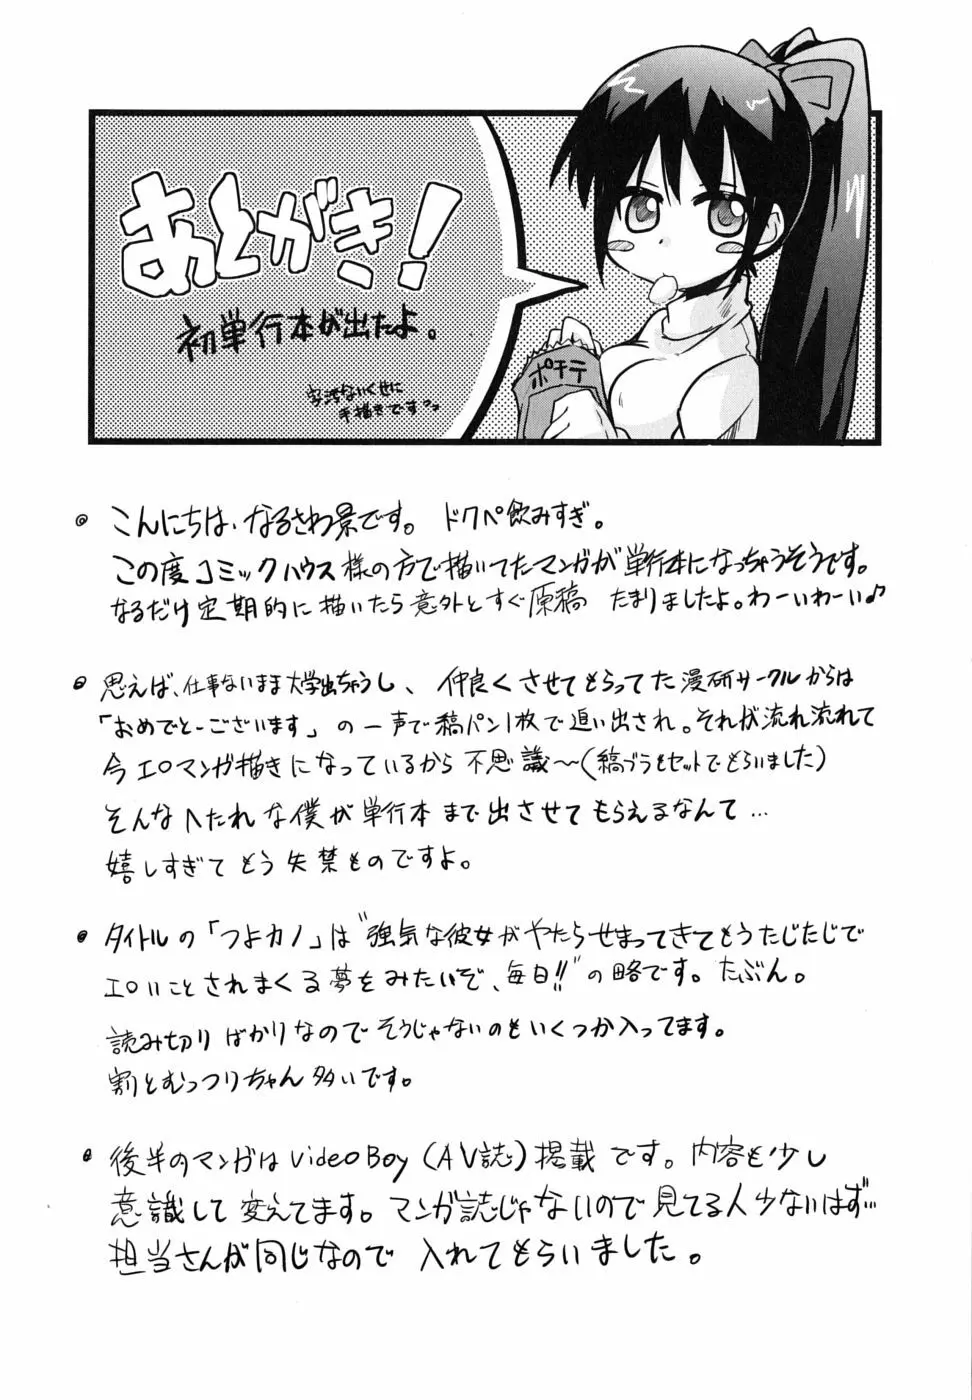 あとがき!
初単行本が出たよ。
字汚ないくせに
手描きですっ
ポテチ
こんにちは、なるさわ景です。 ドクペ飲みすぎ。
この度コミックハウス様の方で描いてたマンガが単行本になっちゃうそうです。
なるだけ定期的に描いたら意外とすぐ原稿 たまりましたよ。わーいわーい♪
思えば、仕事ないまま大学出ちゃうし、仲良くさせてもらってた漫研サークルからは
「おめでとーございます」の一声で縞パン1枚で追い出され。それ以流れ流れて
今エロマンガ描きになっているから不思議〜(縞ブラもセットでもらいました)
そんなヘたれな僕が単行本まで出させてもらえるなんて…
嬉しすぎてもう失禁ものですよ。
タイトルの「つよカノ」は"強気な彼女がやたらせまってきてもうたじたじで
エロいことされまくる夢をみたいぞ、毎日!!"の略です。たぶん。
読み切りばかりなのでそうじゃないのもいくつか入ってます。
割とむっつりちゃん多いです。
後半のマンガはVideo Boy(AV誌)掲載です。内容も少し
意識して変えてます。マンガ誌じゃないので見てる人少ないはず…
担当さんが同じなので入れてもらいました。